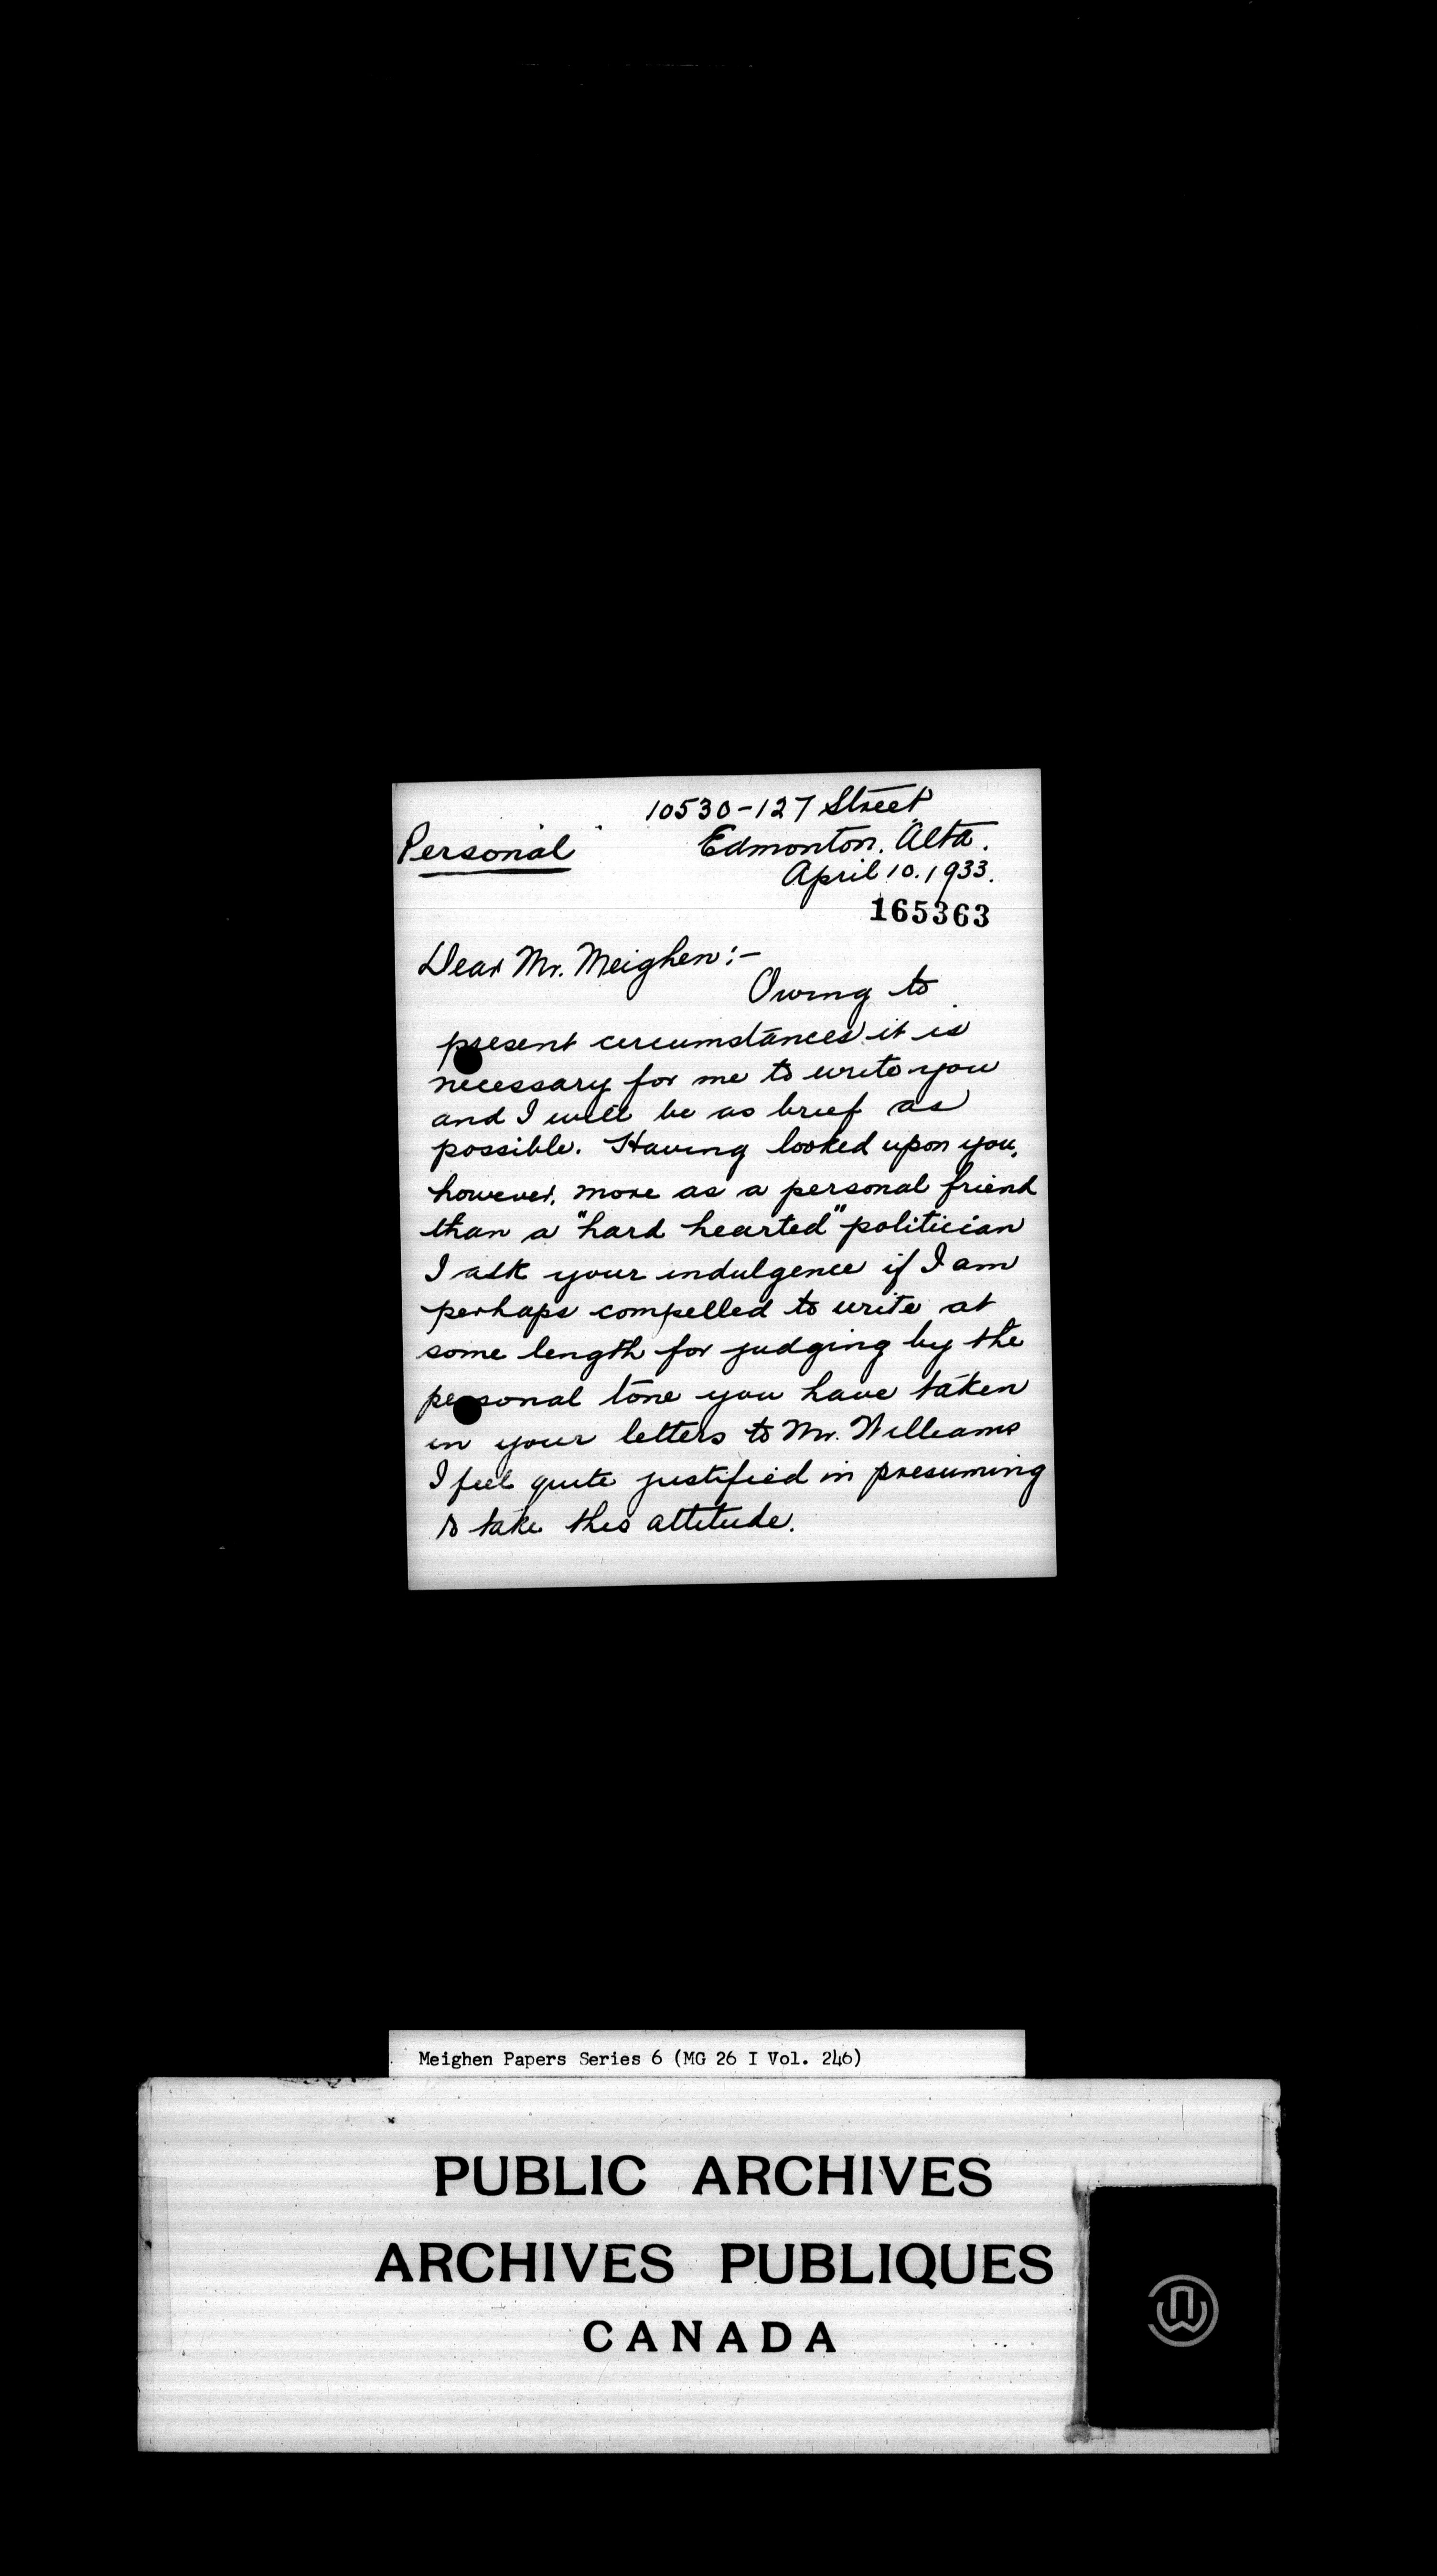 10530-127 Street
Personal
Edmonton. Alta.
April 10. 1933.
165363
Dear Mr. Meighen:-
Owing to
present circumstances it is
necessary for me to write you
and I will be as brief as
possible. Having looked upon you,
however, more as a personal friend
than a "hard hearted" politician
I ask your indulgence if I am
perhaps compelled to write at
some length for judging by the
personal tone you have taken
in your letters to Mr. Williams
I feel quite justified in presuming
to take this attitude.
Meighen Papers Series 6 (MG 26 I Vol. 246)
PUBLIC ARCHIVES
ARCHIVES PUBLIQUES
CANADA